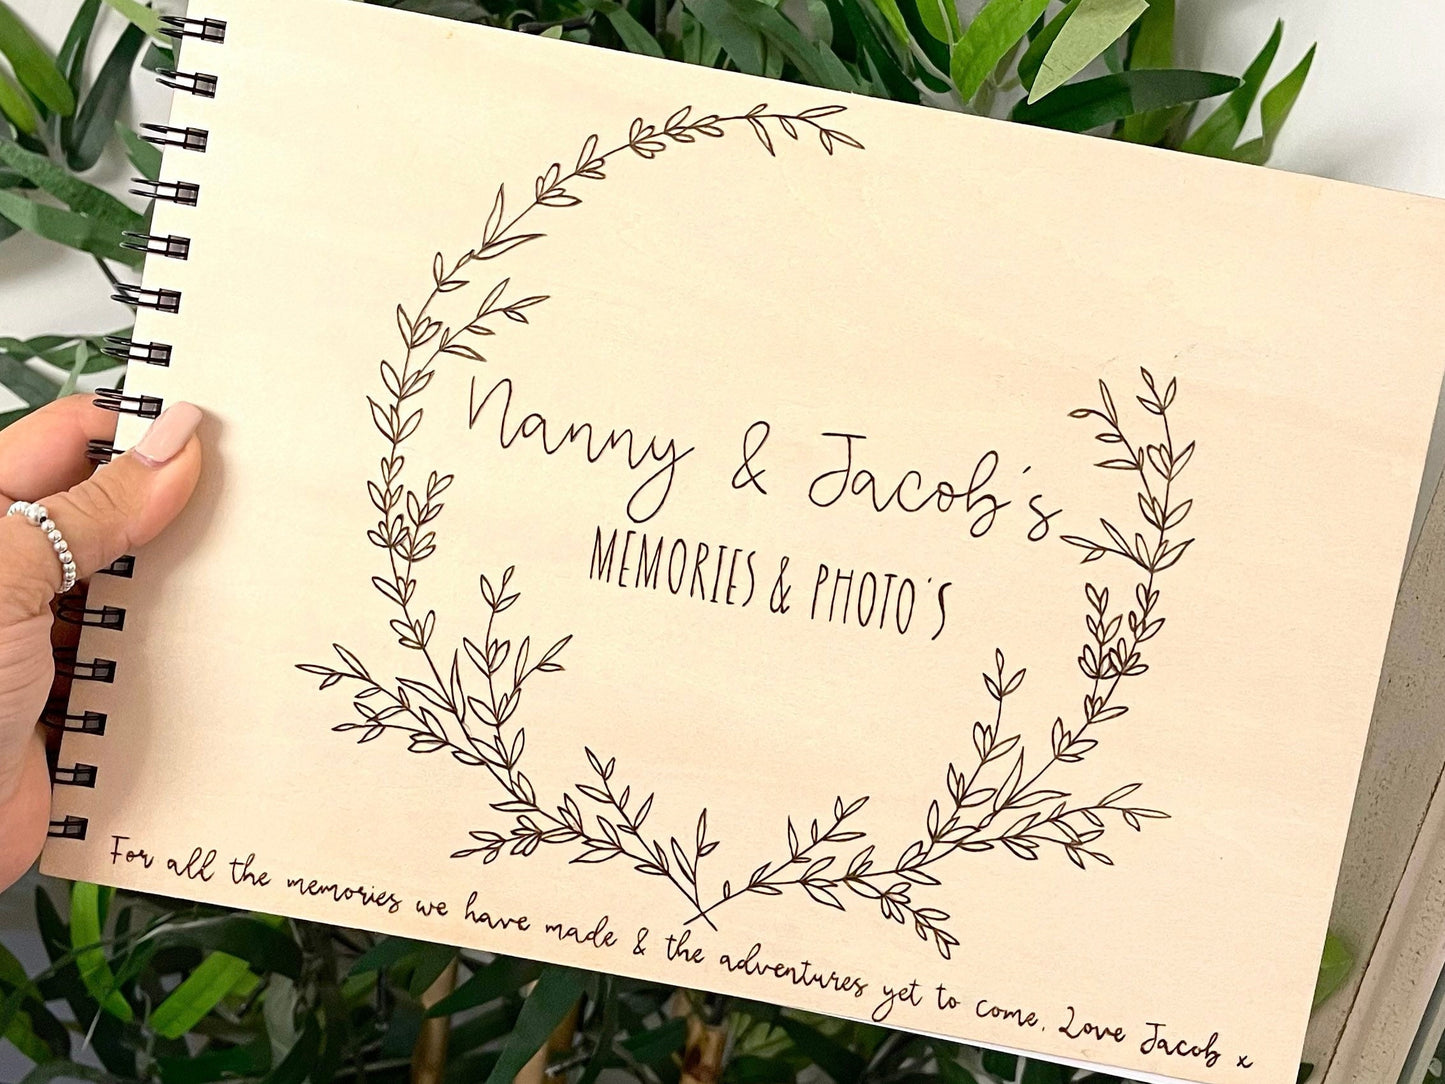 Nanny & Jacob's
MEMORIES & PHOTO'S
For all the memories we have made & the adventures yet to come. Love Jacob x